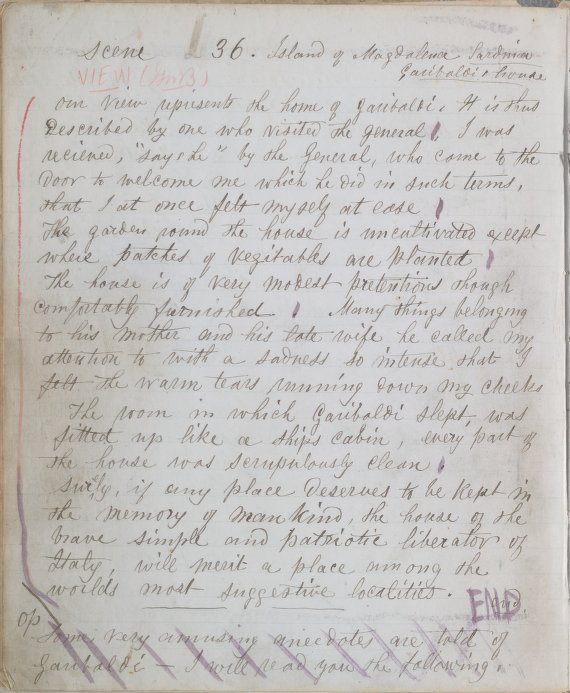 Scene 36. Island of Magdalena Sardinia
Garibaldi's house
VIEW
our view represents the home of Garibaldi. It is thus
described by one who visited the general. I was
recieved, "says he" by the General, who came to the
door to welcome me which he did in such terms,
that I at once felt myself at ease
The garden round the house is uncultivated except
where patches of vegitables are planted
The house is of very modest pretentions though
comfortably furnished. Many things belonging
to his mother and his late wife he called my
attention to with a sadness so intense that I
felt the warm tears running down my cheeks
The room in which Garibaldi slept, was
fitted up like a ships cabin, every part of
the house was scrupulously clean.
surely, if any place deserves to be kept in
the memory of mankind, the house of the
brave simple and patriotic liberator of
Italy, will merit a place among the
worlds most suggestive localities.
END
op
Some very amusing anecdotes are told of
Garibaldi — I will read you the following.